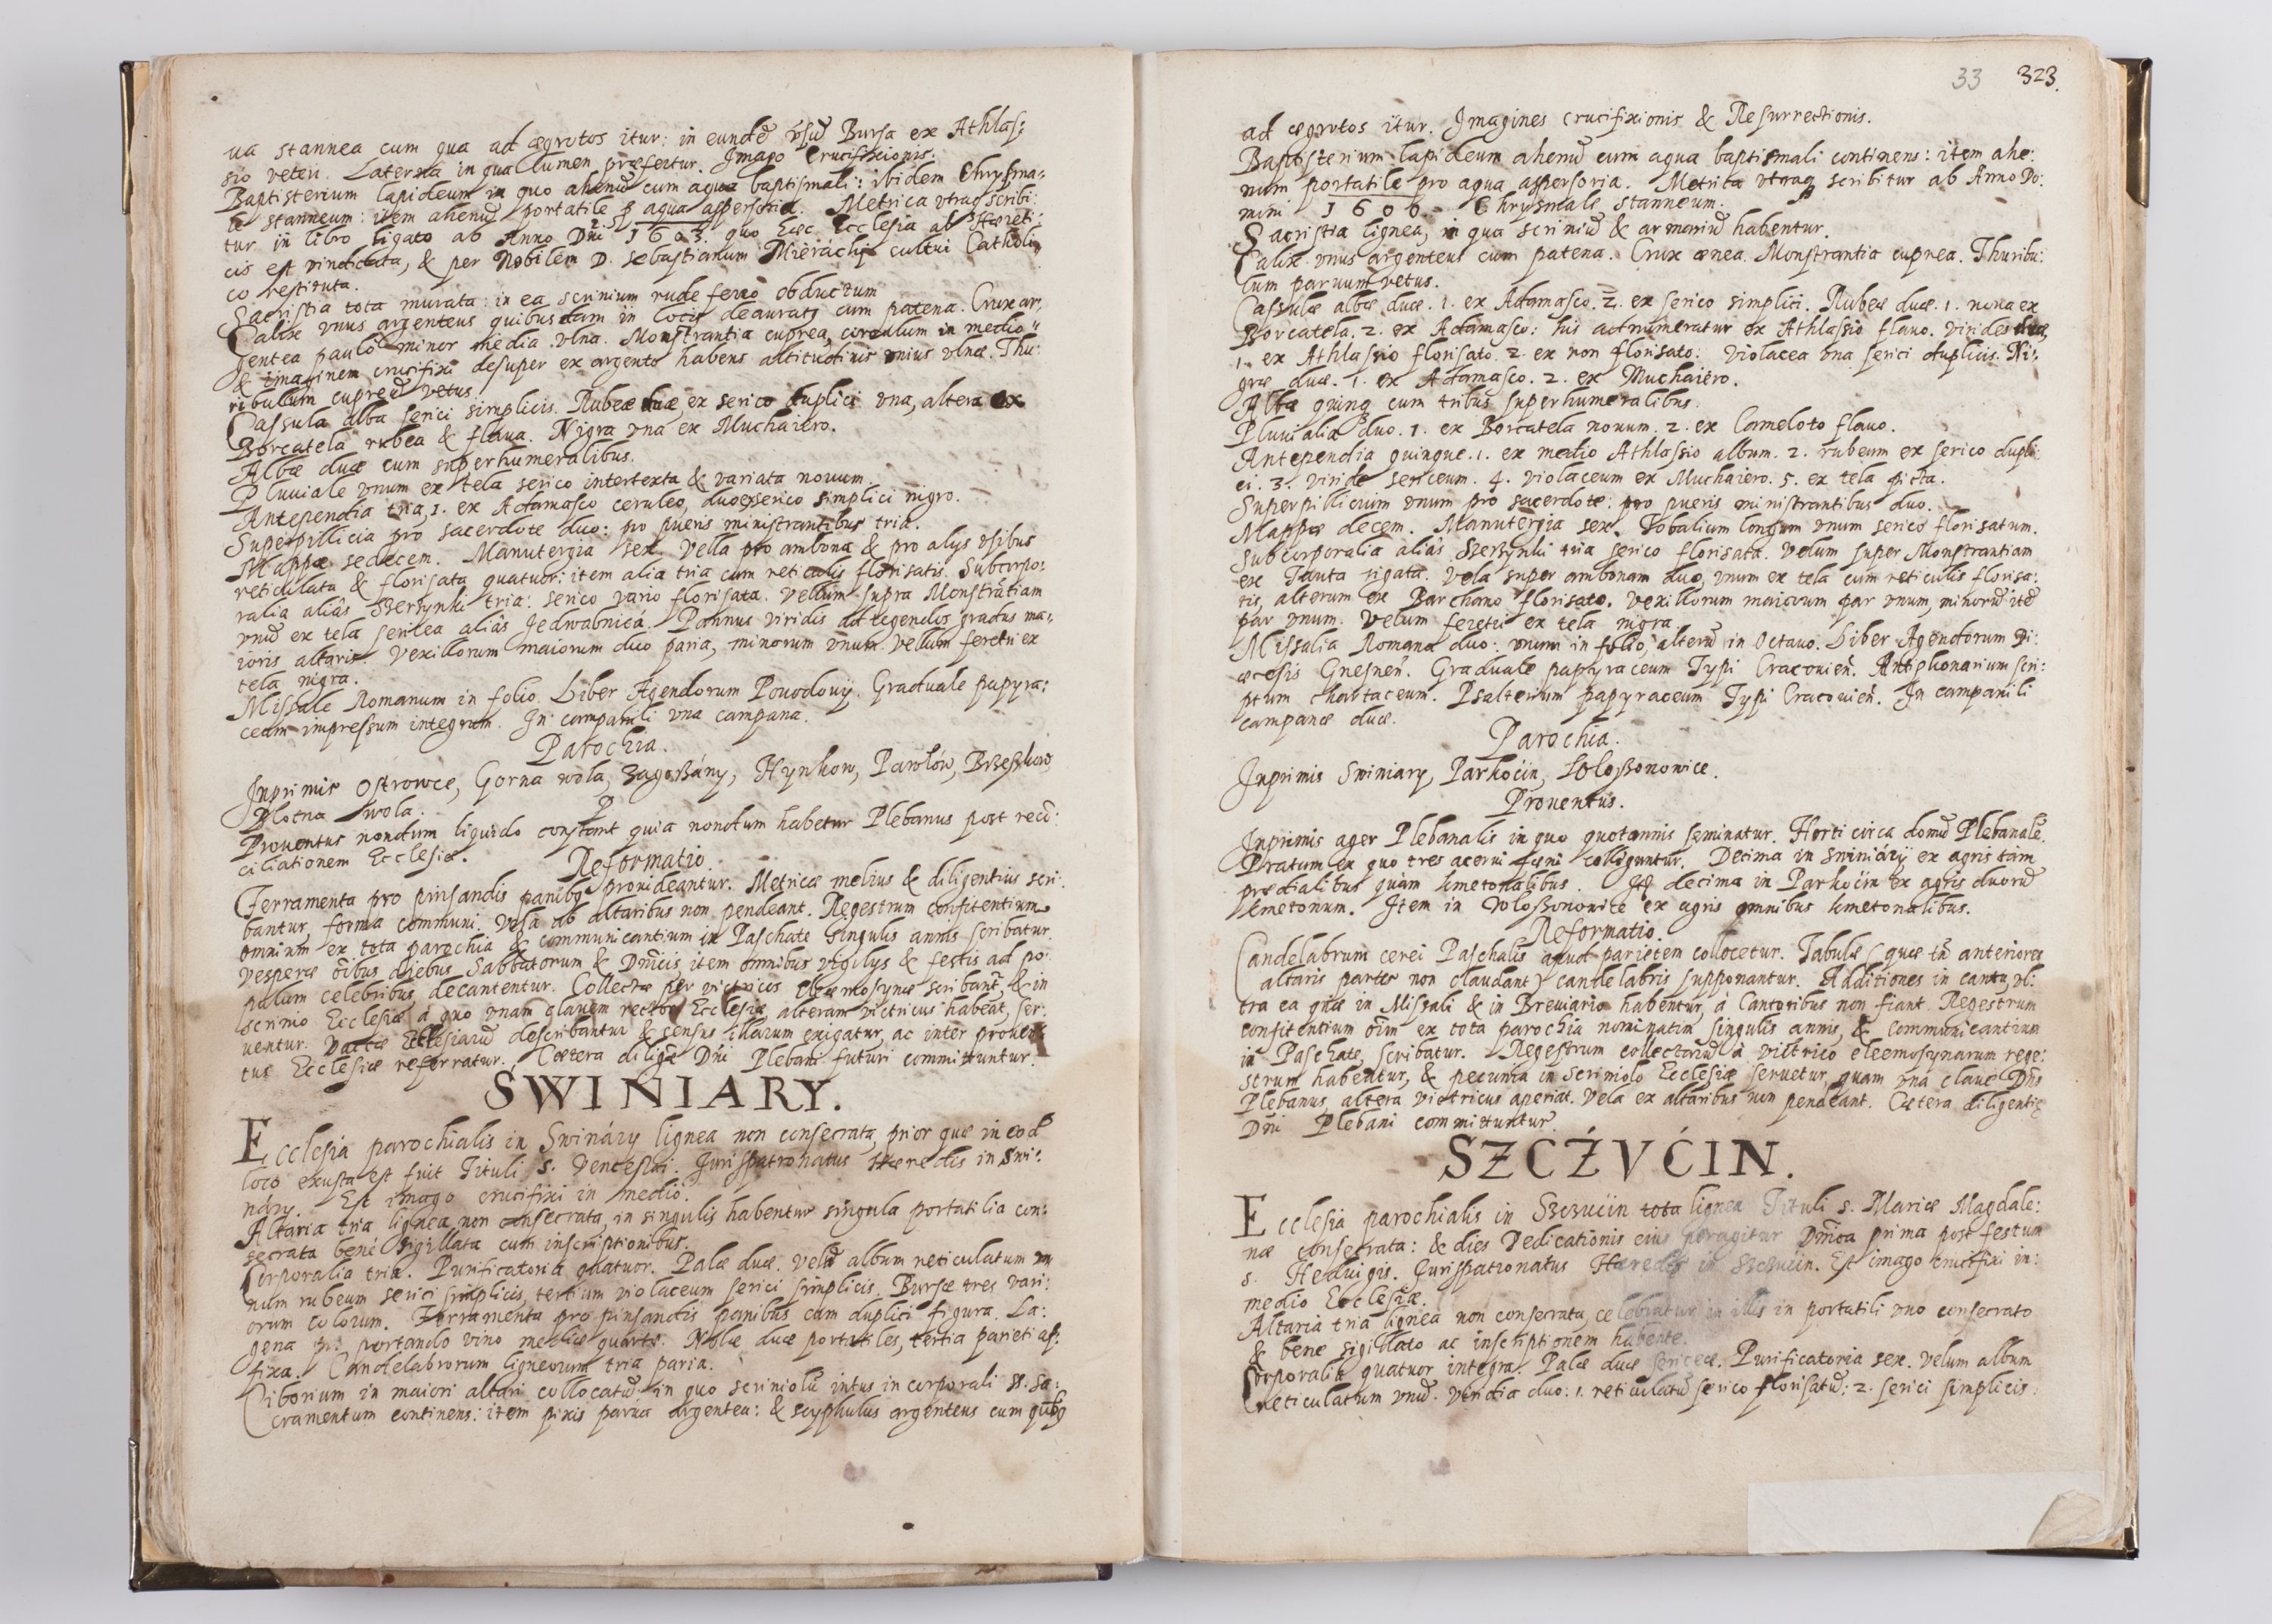 ua stannea cum qua ad ægrotos itur: in eundẽ vsũ Bursa ex Athlas:
sio veteri. Laterna in qua lumen præfertur. Imago Crucifixionis.
Baptisterium lapideum in quo ahenũ cum aqua baptismali: ibidem Chrysma:
le stanneum: item ahenũ portatile ꝓ aqua aspersoria. Metrica vtraq scribi:
tur in libro ligato ab Anno Dni 1603. quo hæc Ecclesia ab Hæreti:
cis est vindicata, & per Nobilem D. Sebastianum cultui Catholi:
co restituta.
Sacristia tota murata: in ea scrinium rude ferro obductum
Calix vnus argenteus quibusdam in locis deauratq cum patena. Crux ar:
gentea paulo minor media vlna. Monstrantia cuprea, circulum in medio
& imaginem crucifixi desuper ex argento habens altitudinis vnius vlnæ. Thu:
ribulum cupreũ vetus.
Cassula alba serici simplicis. Rubeæ duæ, ex serico duplici vna, altera ex
Borcatela rubea & flaua. Nigra vna ex Muchaiero.
Albæ duæ cum superhumeralibus.
Pluuiale vnum ex tela serico intertexta & variata nouum.
Antependia tria, 1. ex Adamasco ceruleo, duo ex serico simplici nigro.
Superpillicia pro sacerdote duo: pro pueris ministrantibus tria.
Mappæ sedecem. Manutergia sex. Vella pro ambona & pro alys vsibus
reticulata & florisata quatuor: item alia tria cum reticulis florisatis. Subcorpo:
ralia aliâs Szerzynki tria: serico vario florisata. Vellum supra Monstrãtiam
vnũ ex tela sericea aliâs Jedwabnicá. Pannus viridis ad tegendos gradus ma:
ioris altaris. Vexillorum maiorum duo paria, minorum vnum. Vellum feretri ex
tela nigra.
Missale Romanum in folio. Liber Agendorum Pouodouij. Graduale papyra:
ceum impressum integrum. In campanili vna campana.
Parochia.
Inprimis Ostrowce, Gorna wola, Zagoßány, Hynkow, Pawłów, Brzeskow
Błotna wola.
Prouentus nondum liquido constant quia nondum habetur Plebanus post recõ:
ciliationem Ecclesiæ.
Reformatio.
Ferramenta pro pinsandis panibq prouideantur. Metricæ melius & diligentius scri:
bantur, forma communi. Vela ab altaribus non pendeant. Regestrum confitentium
omnium ex tota parochia & communicantium in Paschate singulis annis scribatur.
Vesperæ õibus diebus Sabbatorum & Dnicis, item omnibus vigilys & festis ad po:
pulum celebribus decantentur. Collectæ per victricos eleemosynæ scribantr, & in
scrinio Ecclesiæ à quo vnam clauem rector Ecclesiæ, alteram victricus habeat, ser:
uentur. Vaccæ Ecclesiarũ describantur & census illarum exigatur, ac inter prouen:
tus Ecclesiæ referratur. Cætera diligẽ Dni Plebani futuri committuntur.
SWINIARY.
Ecclesia parochialis in Swináry lignea non consecrata, prior quæ in eodẽ
loco exusta est fuit Tituli S. Venceslai. Iurispatronatus Hæredis in Swi:
náry. Est imago crucifixi in medio.
Altaria tria lignea non consecrata, in singulis habentur singula portatilia con:
secrata bene sigillata cum inscriptionibus.
Corporalia tria. Purificatoria quatuor. Palæ duæ. Velũ album reticulatum vn
num rubeum serici simplicis, tertium violaceum serici simplicis. Bursæ tres vari:
orum colorum. Ferramenta pro pinsandis panibus cum duplici figura. La:
gena pro portando vino mediæ quartæ. Nolæ duæ portatiles, tertia parieti af:
fixa. Candelabrorum ligneorum tria paria.
Ciborium in maiori altari collocatũ in quo scriniolũ intus in corporali SS. Sa:
cramentum continens: item pixis parua argentea: & scyphulus argenteus cum quibq
33 323.
ad ægrotos itur. Imagines crucifixionis & Resurrectionis.
Baptisterium lapideum ahenũ cum aqua baptismali continens: item ahe:
num portatile pro aqua aspersoria. Metrica vtraq scribitur ab Anno Do:
mini 1600. Chrysmale stanneum.
Sacristia lignea, in qua scriniũ & armariũ habentur.
Calix vnus argenteus cum patena. Crux ænea. Monstrantia cuprea. Thuribu:
lum paruum vetus.
Cassulæ albæ duæ. 1. ex Adamasco. 2. ex serico simplici. Rubeæ duæ. 1. noua ex
Borcatela. 2. ex Adamasco: his adnumeratur ex Athlassio flauo. Virides duæ,
1. ex Athlassio florisato. 2. ex non florisato. Violacea vna serici duplicis. Ni:
græ duæ. 1. ex Adamasco. 2. ex Muchaiero.
Albæ quinq cum tribus superhumeralibus.
Pluuialia duo. 1. ex Borcatela nouum. 2. ex Cameloto flauo.
Antependia quinque. 1. ex medio Athlassio album. 2. rubeum ex serico dupli:
ci. 3. viride sericeum. 4. violaceum ex Muchaiero. 5. ex tela picta.
Superpillicium vnum pro sacerdote: pro pueris ministrantibus duo.
Mappæ decem. Manutergia sex. Tobalium longum vnum serico florisatum.
Subcorporalia aliâs Szerzynki tria serico florisata. Velum super Monstrantiam
ex Tauta rigata. Vela super ambonam duo, vnum ex tela cum reticulis florisa:
tis, alterum ex Parchano florisato. Vexillorum maiorum par vnum, minorũ itẽ
par vnum. Velum feretri ex tela nigra.
Missalia Romana duo: vnum in folio, alterũ in Octauo. Liber Agendorum Di:
æcesis Gnesneñ. Graduale papyraceum Typi Cracouieñ. Antiphonarium scri:
ptum chartaceum. Psalterium papyraceum Typi Cracouieñ. In campanili
campanæ duæ.
Parochia.
Inprimis Swiniary, Parkoćin, Woloßonowice.
Prouentus.
Inprimis ager Plebanalis in quo quotannis seminatur. Horti circa domũ Plebanalẽ.
Pratum ex quo tres acerui fœni colliguntur. Decima in Swiniáry ex agris tàm
prædialibus quàm kmetonalibus. Itẽ decima in Parkoćin ex agris duorũ
kmetonum. Item in Woloßonowice ex agris omnibus kmetonalibus.
Reformatio.
Candelabrum cerei Paschalis apud parietem collocetur. Tabulæ (quæ tñ anteriores
altaris partes non claudant) candelabris supponantur. Additiones in cantu, vl:
tra ea quæ in Missali & in Breuiario habentur, à Cantoribus non fiant. Regestrum
confitentium oim ex tota parochia nominatim singulis annis, & communicantium
in Paschate, scribatur. Regestrum collectarũ à victrico eleemosynarum rege:
strum habeatur, & pecunia in scriniolo Ecclesiæ seruetur, quam vna claue Dns
Plebanus, altera victricus aperiat. Vela ex altaribus non pendeant. Cætera diligentiæ
Dni Plebani committuntur.
SZCŹVĆIN.
Ecclesia parochialis in Szczućin tota lignea Tituli S. Mariæ Magdale:
næ consecrata: & dies Dedicationis eius peragitur Dnica prima post festum
S. Heduigis. Iurispatronatus Hæredis in Szczućin. Est imago crucifixi in:
medio Ecclesiæ.
Altaria tria lignea non consecrata, celebratur in illis in portatili vno consecrato
& bene sigillato ac inscriptionem habente.
Corporalia quatuor integra. Palæ duæ sericeæ. Purificatoria sex. Velum album
reticulatum vnũ. Viridia duo: 1. reticulatũ serico florisatũ: 2. serici simplicis.